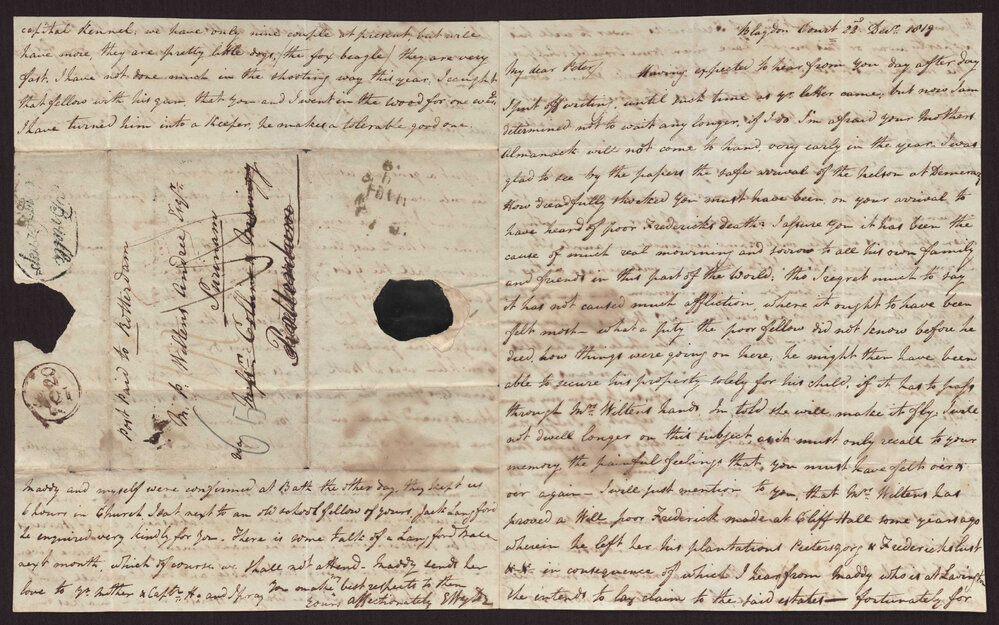 Blagdon Court 22d Decr. 1819
My dear Peter, Having expected to hear from you day after day
I put off writing until such time as yr letter came, but now I am
determined not to wait any longer, if I do I'm afraid your Mothers
Almanack will not come to hand very early in the year. I was
glad to see by the papers the safe arrival of the Nelson at Demerary
How dreadfully shocked you must have been on your arrival to
have heard of poor Fredericks death. I assure you it has been the
cause of much real mourning and sorrow to all his own family
and friends in this part of the World, tho' I regret much to say
it has not caused much affliction where it ought to have been
felt most — what a pity the poor fellow did not know before he
died how things were going on here, he might then have been
able to secure his property solely for his child, if it has to pass
through Mrs Wiltens hands, I'm told she will make it fly. I will
not dwell longer on this subject as it must only recall to your
memory the painful feelings that you must have felt over &
over again — I will just mention to you, that Mrs Wiltens has
proved a Will poor Frederick made at Cliff Hall some years ago
wherein he left her his plantations Pietersgorg & Fredericks lust
&c in consequence of which I hear from Maddy who is at
she intends to lay claim to the said estates — fortunately for
capital Kennel; we have only nine couple at present, but
have more, they are pretty little dogs, the fox beagle, they are very
fast, I have not done much in the shooting way this year, I caught
that fellow with his gun, that you and I went in the wood for one
I have turned him into a Keeper, he makes a tolerable good one.
Post Paid to Rotterdam
M P. Wiltens Andree Esqr.
Surinam
Maddy and myself were confirmed at Bath the other day, they kept us
6 hours in Church I sat next to an old school fellow of yours, Jack Langford
he enquired very kindly for you. There is some talk of a Langford
next month, which of course we shall not attend. Maddy sends her
love to yr mother & Captn. H. and I pray you make best respects to them
Yours affectionately